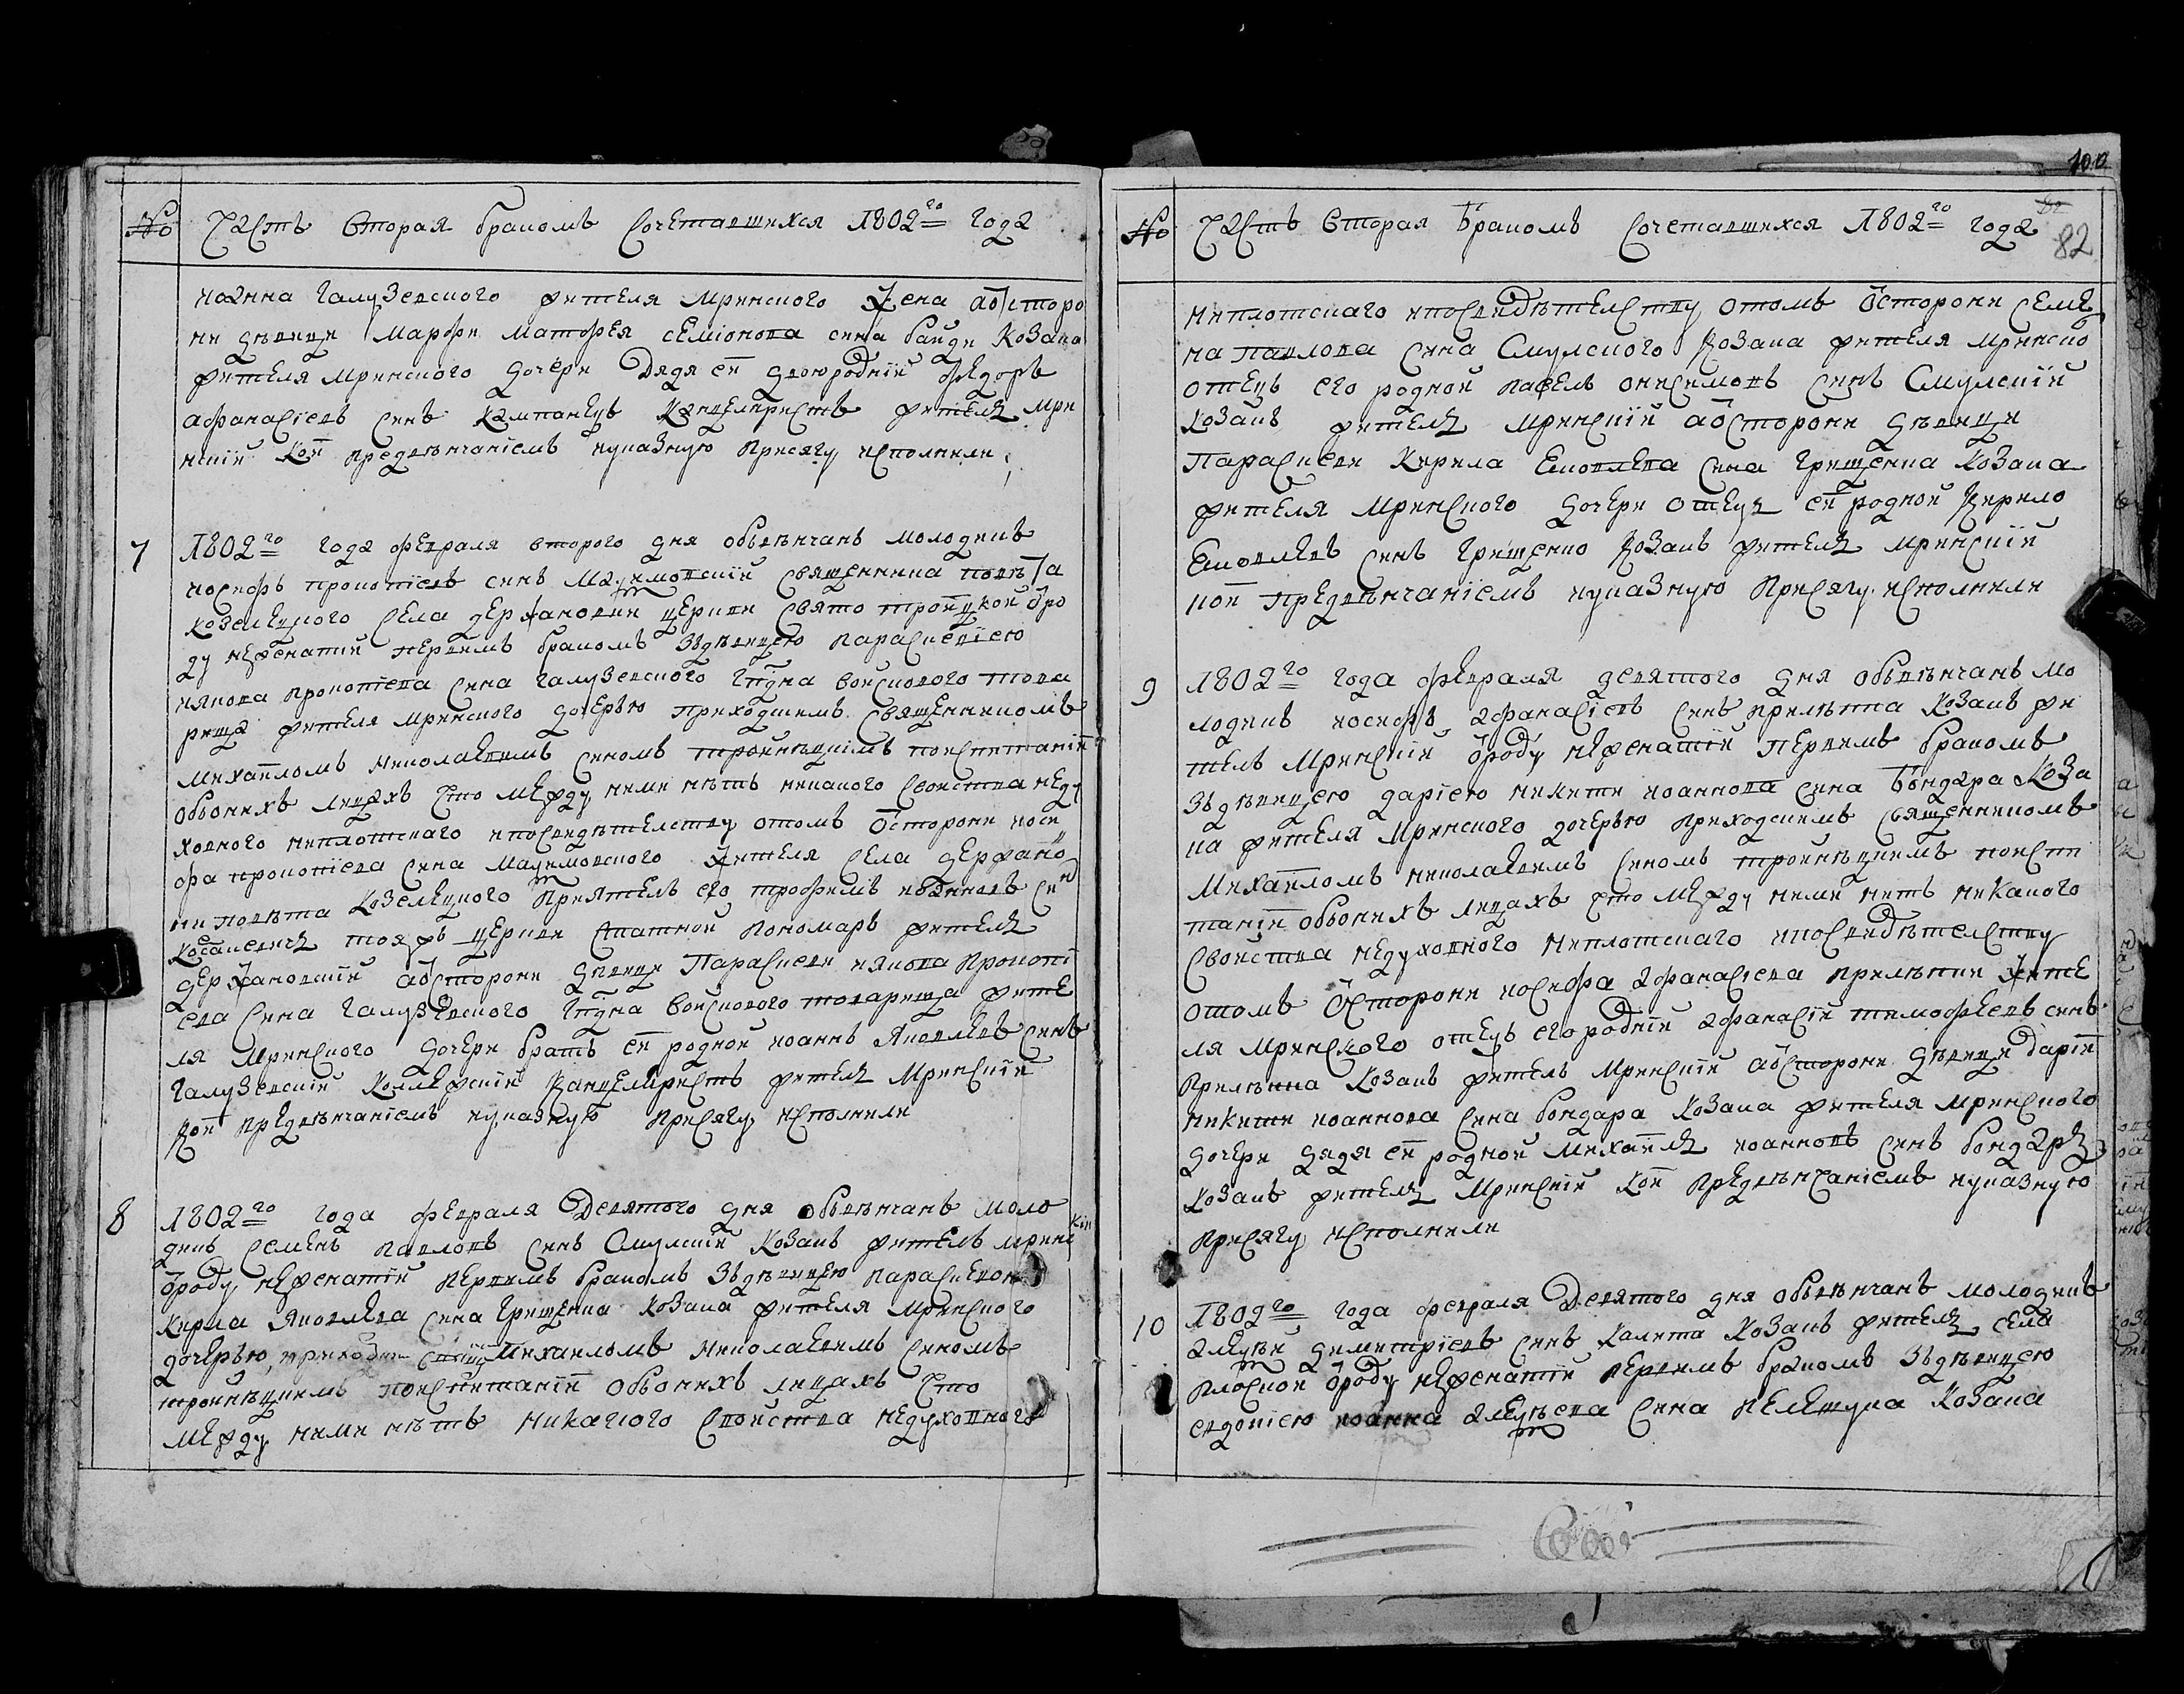 № Часть вторая бракомъ сочетавшихся 1802го года
иоанна галузевского жителя мринского жена а ѿ сторо
ни дѣвици Марфи матфея семіонова сина байди козака
жителя мринского дочери дядя ей двоюродній федоръ
афанасіевъ синъ компанецъ канцеляристъ житель мри
нскій кои предвѣнчаніемъ иуказную присягу исполнили
7
1802го года февраля второго дня обвѣнчанъ молодикъ
иосифъ прокопіевъ синъ священника повѣта
козелецкого села держановки церкви свято троицкой ѿро
ду неженатій первимъ бракомъ здѣвицею параскевіею
иякова прокопіева сина галузевского гпдна войскового това
рища жителя мринского дочерью приходскимъ священникомъ
михаиломъ николаевимъ синомъ тройницкимъ поиспитаніи
обоихъ лицахъ что между ними нѣтъ никакого свойства неду
ховного ниплотскаго ипосвидѣтелству отомъ ѿсторони иоси
фа прокопіева сина жителя села держано
вки повѣта козелецкого приятель его трофимъ иоанновъ син
тояжъ церкви статной пономарь житель
держановскій а ѿ сторони дѣвици Параскеви иякова прокопі
ева сина галузевского гпдна войскового товарища жите
ля мринского дочери братъ ей родной иоаннъ яковлевъ синъ
галузевский коллежскій канцеляристъ житель мринскій
кои предвѣнчаніемъ иуказную присягу исполнили
8
1802го года февраля девятого дня обвѣнчанъ моло
дикъ семенъ павловъ синъ смулскій козакъ житель мринскій
ѿроду неженатій первимъ бракомъ здѣвицею параскевою
кирила яковлева сина грищенка козака жителя мринского
дочерью, приходским сщнникомъ михаиломъ николаевимъ синомъ
тройницкимъ поиспитаніи обоихъ лицахъ что
между ними нѣтъ никакого свойства недуховного
№ Часть вторая бракомъ сочетавшихся 1802го года
82
100
ниплотскаго ипосвидѣтелству отомъ ѿсторони семе
на павлова сина смулского козака жителя мринско
отецъ его родной павелъ онисимовъ синъ смулскій
козакъ житель мринскій а ѿсторони дѣвици
Параскеви кирила яковлева сина грищенка козака
жителя мринского дочери отецъ ей родной кирило
яковлевъ синъ грищенко козакъ житель мринскій
кои предвѣнчаніемъ иуказную присягу исполнили
9
1802го года февраля девятого дня обвѣнчанъ мо
лодикъ иосифъ афанасіевъ синъ прилѣпка козакъ жи
тель мринскій ѿроду неженатій первимъ бракомъ
здѣвицею даріею никити иоаннова сина бондара коза
ка жителя мринского дочерью приходскимъ священникомъ
михаиломъ николаевимъ синомъ тройницкимъ поиспи
таніи обоихъ лицахъ что между ними нитъ никакого
свойства недуховного ниплотскаго ипосвидѣтелству
отомъ ѿсторони иосифа афанасіева прилѣпки жите
ля мринского отецъ его родній афанасій тимофѣевъ синъ
прилѣпка козакъ житель мринскій а ѿсторони дѣвици даріи
никити иоаннова сина бондара козака жителя мринского
дочери дядя ей родной михаилъ иоанновъ синъ бондарь
козакъ житель мринскій кои предвѣнчаніемъ иуказную
присягу исполнили
10
1802го года февраля девятого дня обвѣнчанъ молодикъ
алеѯѣй димитріевъ синъ калита козакъ житель села
плоской ѿроду неженатій первимъ бракомъ здѣвицею
евдокіею иоанна алеѯѣева сина пелешука козака